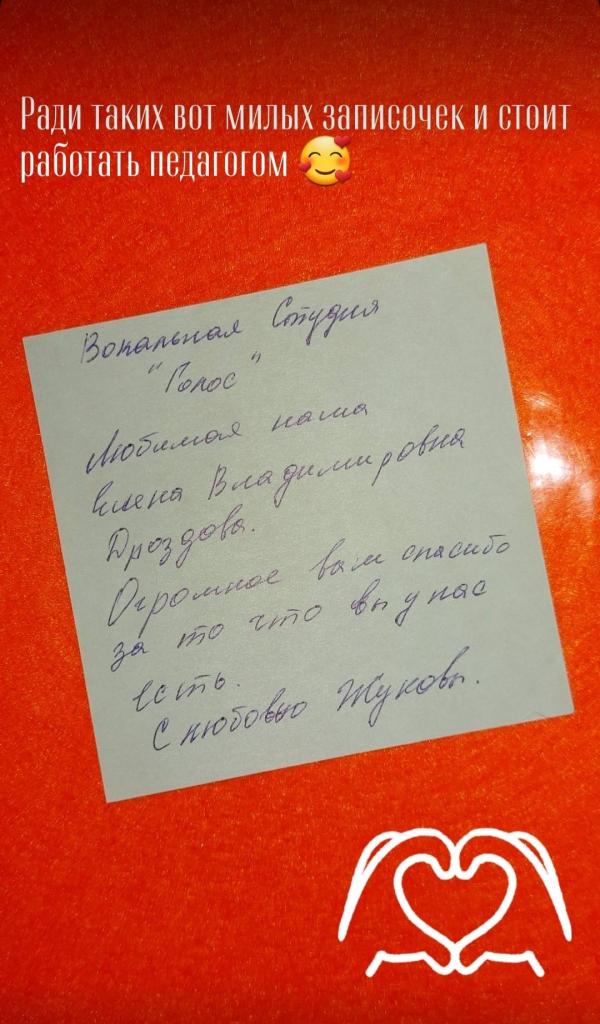 Ради таких вот милых записочек и стоит
работать педагогом 🥰
Вокальная Студия
"Голос"
Любимая наша
Елена Владимировна
Дроздова.
Огромное вам спасибо
за то что вы у нас
есть.
С любовью Жуковы.